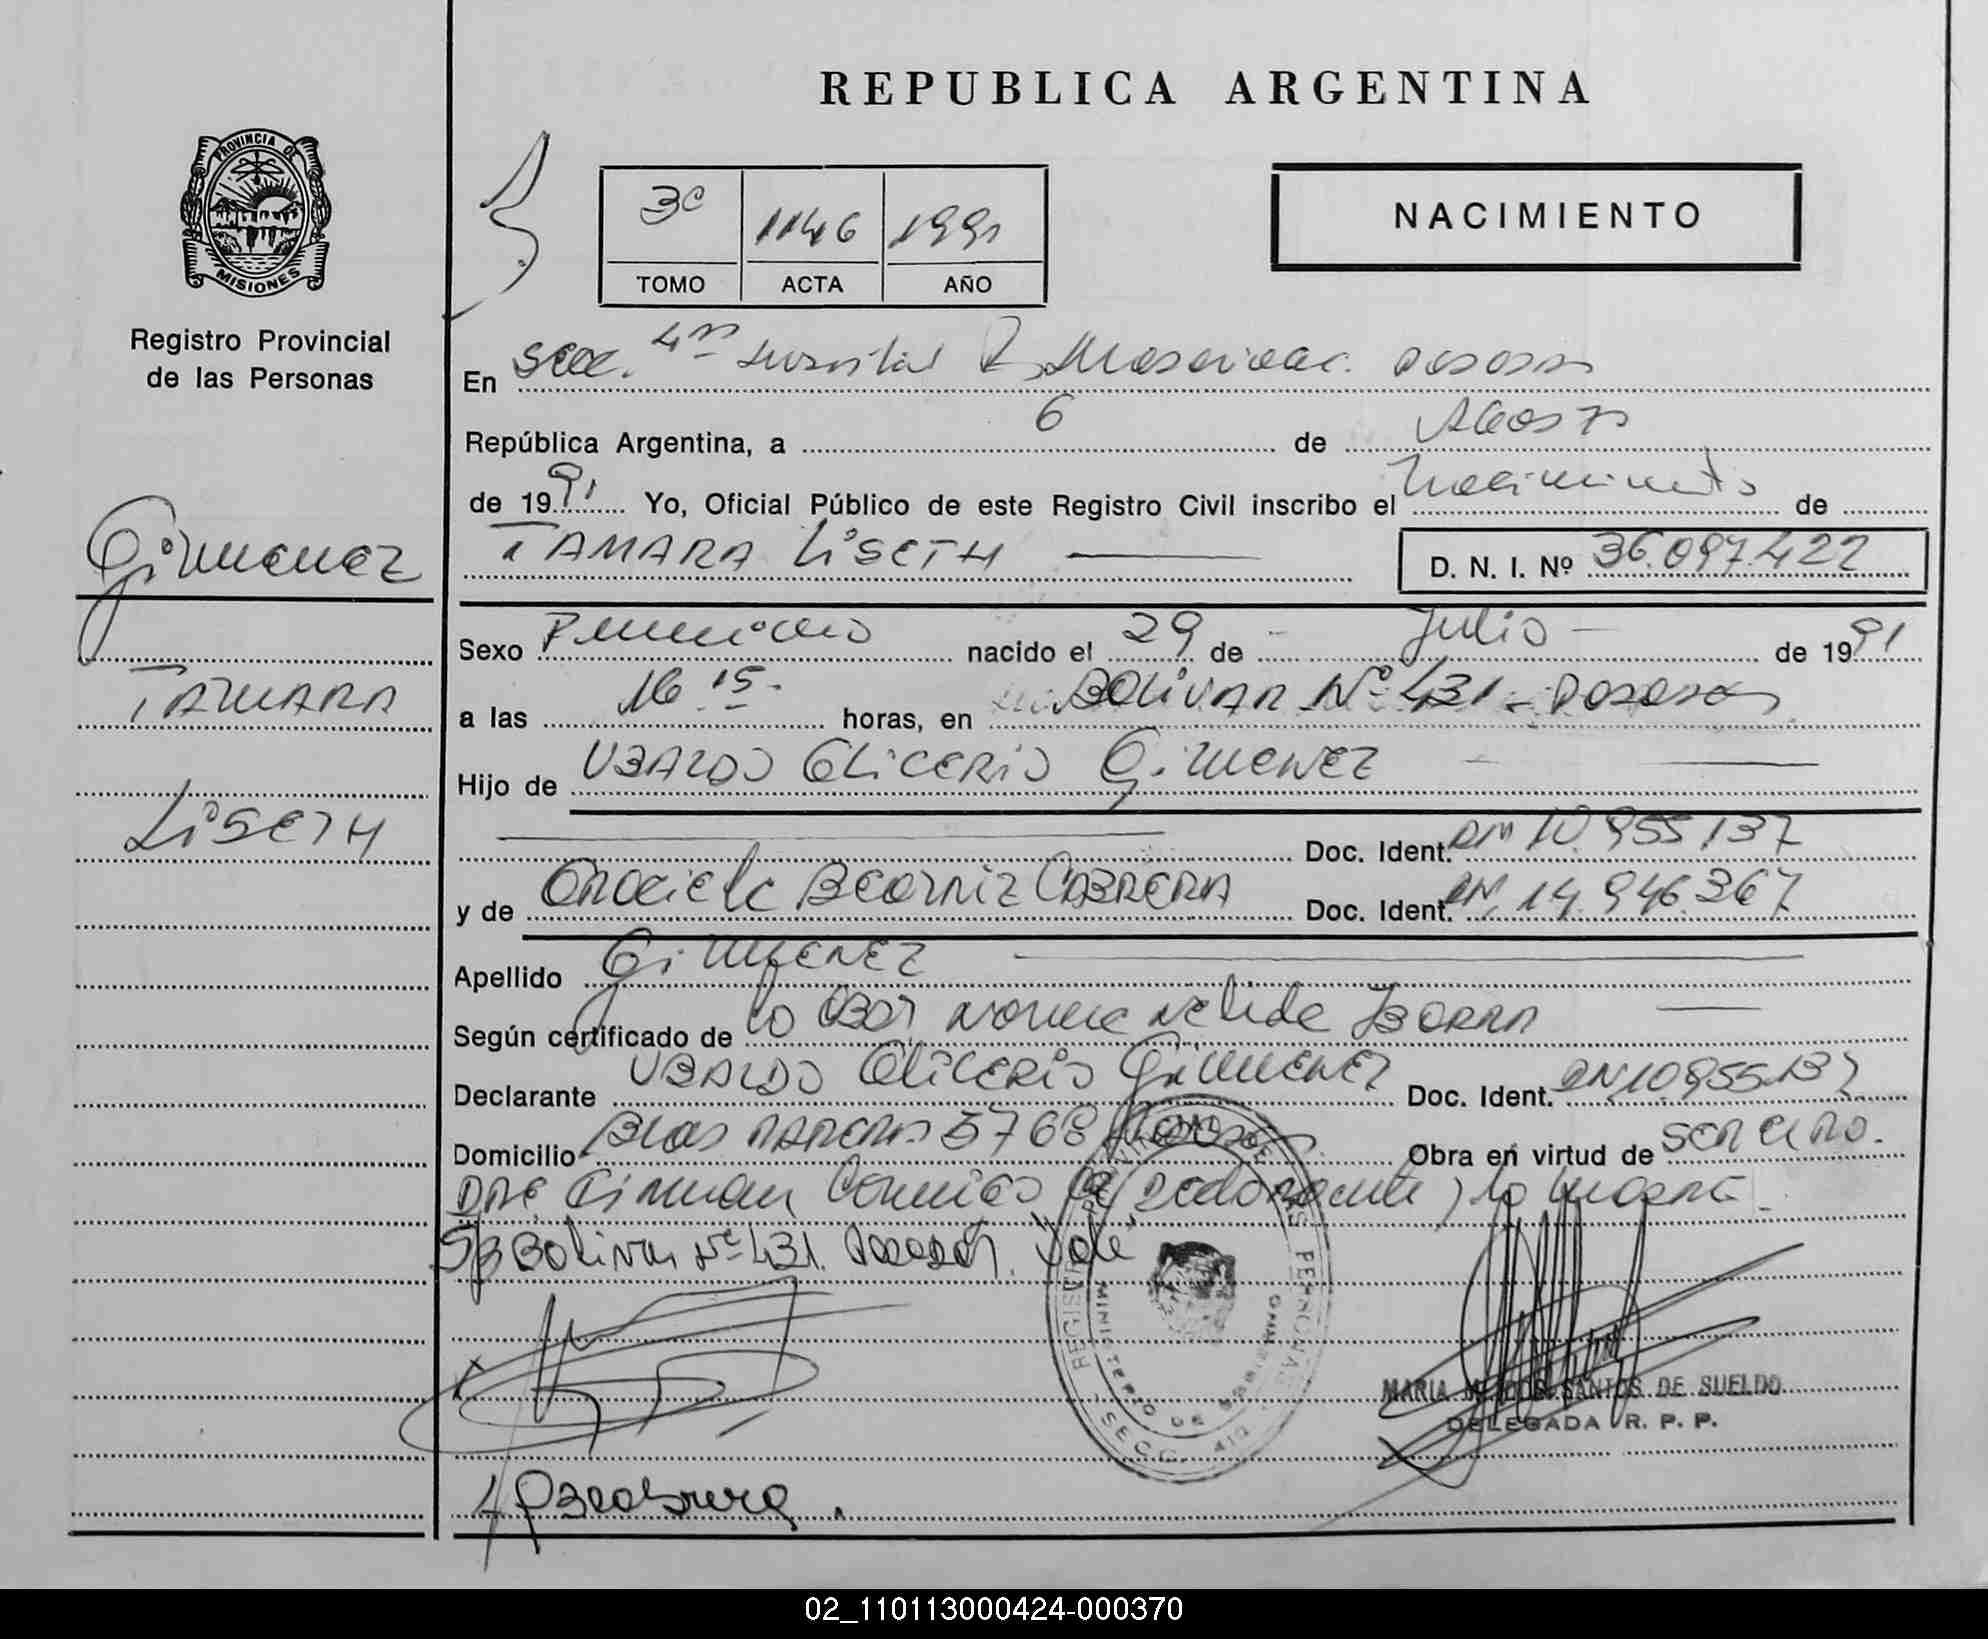 REPUBLICA ARGENTINA
PROVINCIA DE
MISIONES
Registro Provincial
de las Personas
3º 1146 1991
TOMO ACTA AÑO
NACIMIENTO
En Secc. 4ta Posadas
República Argentina, a 6 de Agosto
de 1991 Yo, Oficial Público de este Registro Civil inscribo el Nacimiento de
TAMARA LISETH
D. N. I. Nº 36.097.422
Gimenez
TAMARA
LISETH
Sexo Femenino nacido el 29 de Julio de 1991
a las 16.15 horas, en BOLIVAR Nº 431 - Posadas
Hijo de UBALDO GLICERIO GIMENEZ
Doc. Ident. DNI 10.955.137
y de Graciela BEATRIZ CABRERA Doc. Ident. DNI 14.946.367
Apellido GIMENEZ
Según certificado de la Obst Nelida
Declarante UBALDO GLICERIO GIMENEZ Doc. Ident. DNI 10.955.137
Domicilio Blas PARERA 5768 Posadas Obra en virtud de SER el PAD.
DRE. Firman Conmigo (declarante) la madre
S/B Bolivar Nº 431. Posadas. Vale
REGISTRO PROVINCIAL DE LAS PERSONAS
MINISTERIO DE GOBIERNO
SECC. 4ta
MARIA DOS SANTOS DE SUELDO
DELEGADA R. P. P.
02_110113000424-000370